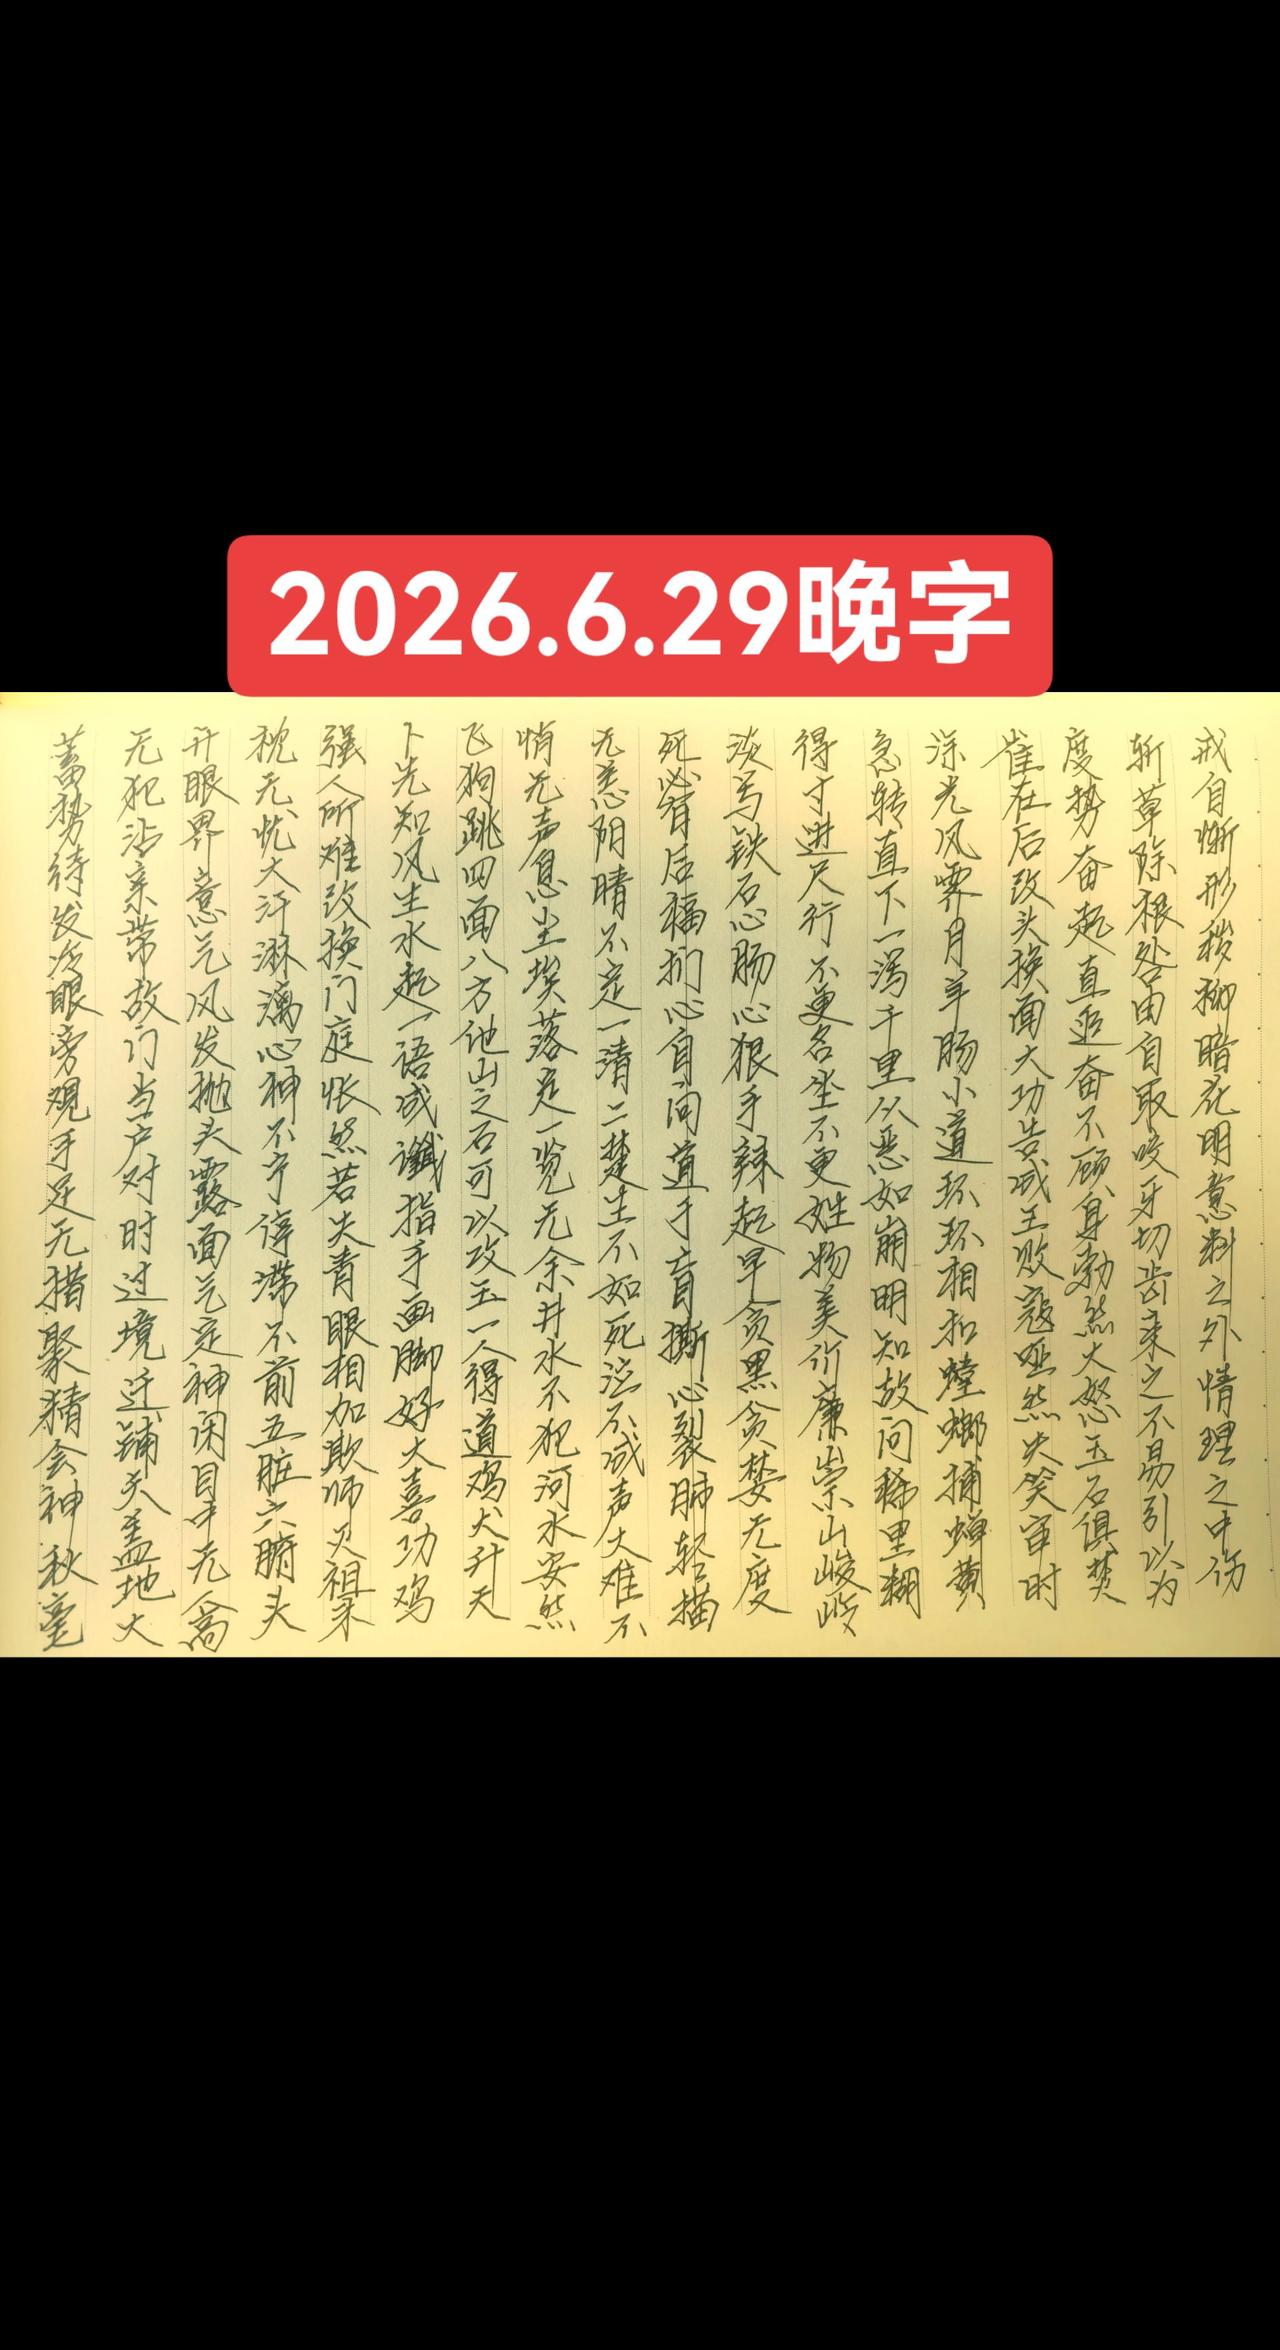 2026.6.29晚字
蓄势待发冷眼旁观手足无措聚精会神秋毫
无犯沾亲带故门当户对时过境迁铺天盖地大
开眼界意气风发抛头露面气定神闲目中无人高
枕无忧大汗淋漓心神不宁停滞不前五脏六腑头
强人所难改换门庭怅然若失青眼相加欺师灭祖未
卜先知风生水起一语成谶指手画脚好大喜功鸡
飞狗跳四面八方他山之石可以攻玉一人得道鸡犬升天
悄无声息尘埃落定一览无余井水不犯河水安然
无恙阴晴不定一清二楚生不如死泣不成声大难不
死必有后福扪心自问道于盲撕心裂肺轻描
淡写铁石心肠心狠手辣起早贪黑贪婪无度
得寸进尺行不更名坐不更姓物美价廉崇山峻岭
急转直下一泻千里从恶如崩明知故问稀里糊
涂光风霁月羊肠小道环环相扣螳螂捕蝉黄
雀在后改头换面大功告成王败寇哑然失笑审时
度势奋起直追奋不顾身勃然大怒玉石俱焚
斩草除根咎由自取咬牙切齿来之不易引以为
戒自惭形秽柳暗花明意料之外情理之中伤